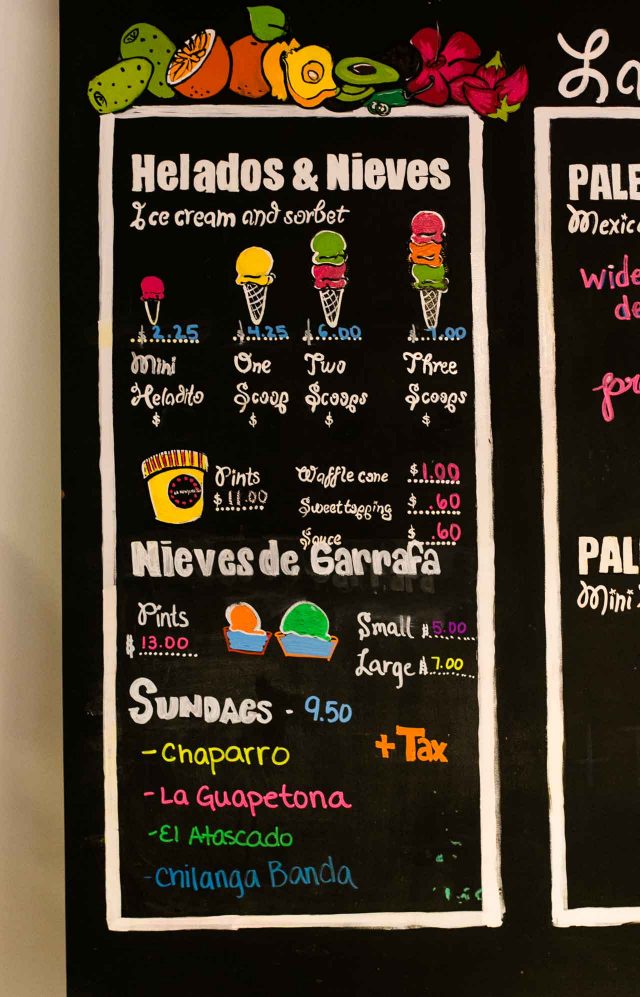 La
Helados & Nieves
Ice cream and sorbet
$2.25 $4.25 $6.00 $7.00
Mini One Two Three
Heladito Scoop Scoops Scoops
$ $ $ $
Pints Waffle cone $1.00
$11.00 Sweet topping $.60
Sauce $.60
Nieves de Garrafa
Pints
$13.00
Small $5.00
Large $7.00
Sundaes - 9.50
+ Tax
- Chaparro
- La Guapetona
- El Atascado
- Chilanga Banda
PALE
Mexic
wide
de
pr
PAL
Mini